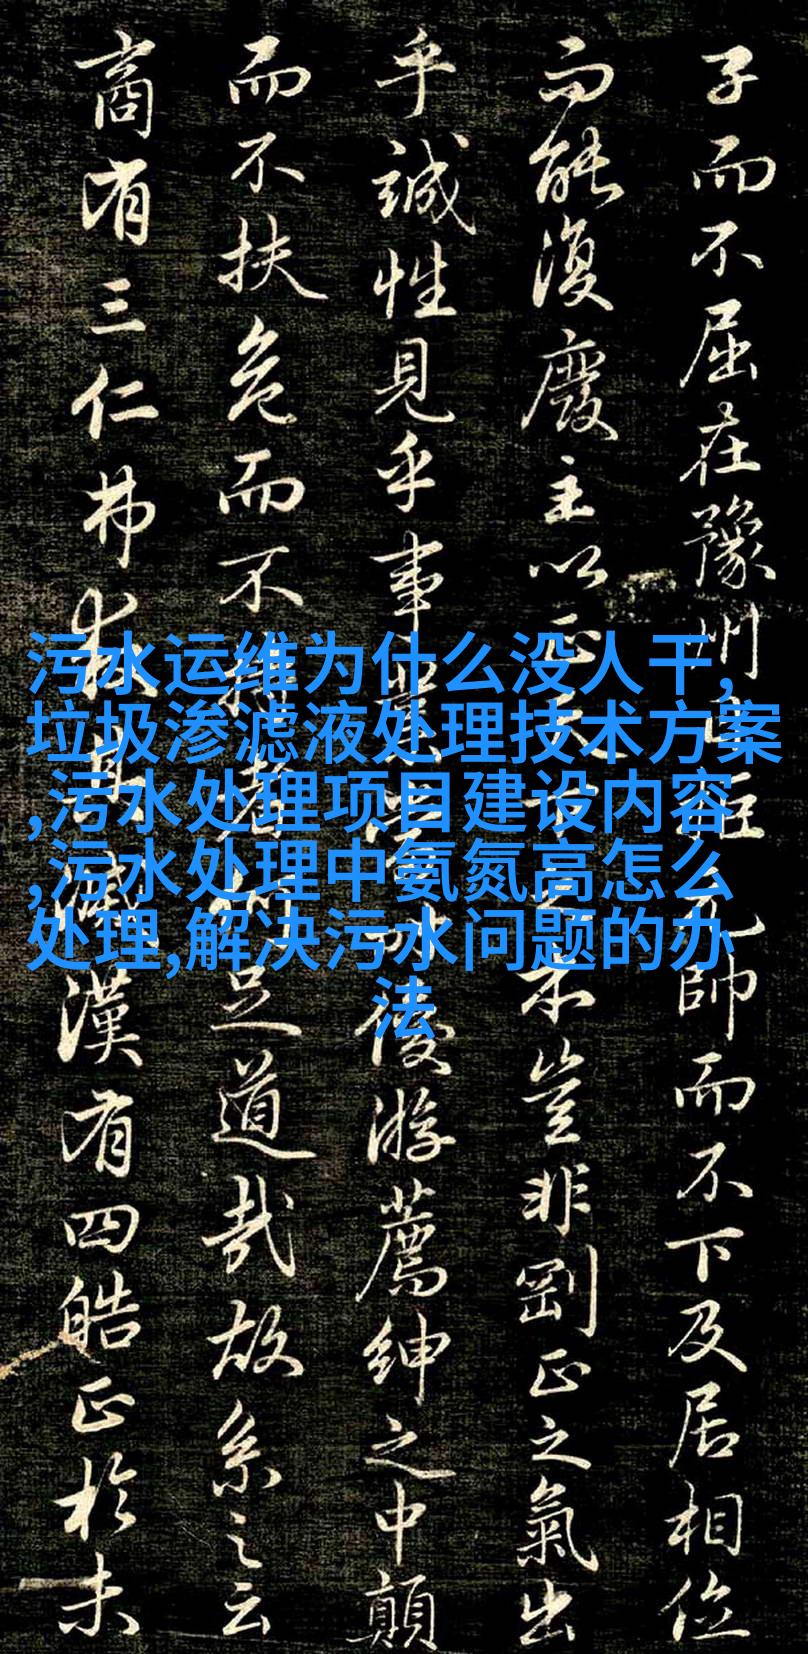 子而不屈在豫州日拒元帥而不下及居相位
而能復廢主以正天下之本豈非剛正之氣出
乎誠性見乎事業當時優游薦紳之中顛
而不扶危而不持者何足道哉故系之云
商有三仁弗救其滅漢有四皓正於未
污水运维为什么没人干,
垃圾渗滤液处理技术方案
,污水处理项目建设内容
,污水处理中氨氮高怎么
处理,解决污水问题的办
法